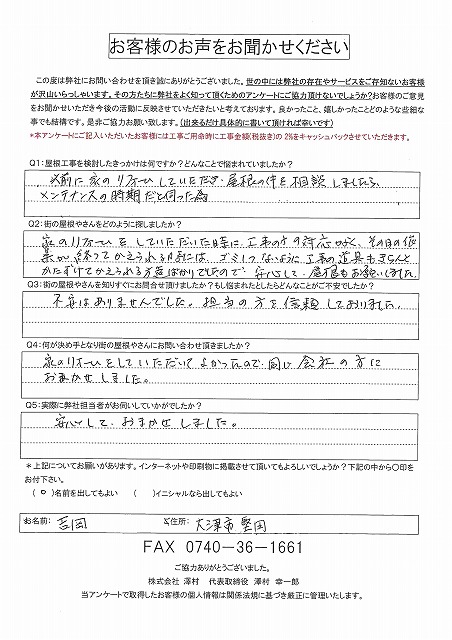 お客様のお声をお聞かせください
この度は弊社にお問い合わせを頂き誠にありがとうございました。世の中には弊社の存在やサービスをご存知ないお客様
が沢山いらっしゃいます。その方たちに弊社をよく知って頂くためのアンケートにご協力頂けないでしょうか？お客様のご意見
をお聞かせいただき今後の活動に反映させていただきたいと考えております。良かったこと、嬉しかったことどのような些細な
事でも結構です。是非ご協力お願い致します。（出来るだけ具体的に書いて頂ければ幸いです）
*本アンケートにご記入いただいたお客様には工事ご用命時に工事金額(税抜き)の 2%をキャッシュバックさせていただきます。
Q1：屋根工事を検討したきっかけは何ですか？どんなことで悩まれていましたか？
以前に家のリフォームしていただき、屋根の件を相談しましたら、
メンテナンスの時期だと伺った為
Q2：街の屋根やさんをどのように探しましたか？
家のリフォームをしていただいた時に、工事の方の対応がよく、その日の作
業が終ってかえられる時には、ゴミ1つないように、工事の道具もきちんと
かたずけてかえられる方達ばかりでしたので、安心して、屋根もお願いしました
Q3：街の屋根やさんを知りすぐにお問合せ頂けましたか？もし悩まれたとしたらどんなことがご不安でしたか？
不安はありませんでした。担当の方を信頼しておりました。
Q4：何が決め手となり街の屋根やさんにお問い合わせ頂きましたか？
家のリフォームをしていただいてよかったので、同じ会社の方に
おまかせしました。
Q5：実際に弊社担当者がお伺いしていかがでしたか？
安心して、おまかせしました。
＊上記についてお願いがあります。インターネットや印刷物に掲載させて頂いてもよろしいでしょうか？下記の中から〇印を
お付下さい。
（ O ）名前を出してもよい （ ）イニシャルなら出してもよい
お名前： 吉岡 ご住所： 大津市堅田
FAX 0740－36－1661
ご協力ありがとうございました。
株式会社 澤村 代表取締役 澤村 幸一郎
当アンケートで取得したお客様の個人情報は関係法規に基づき厳正に管理いたします。